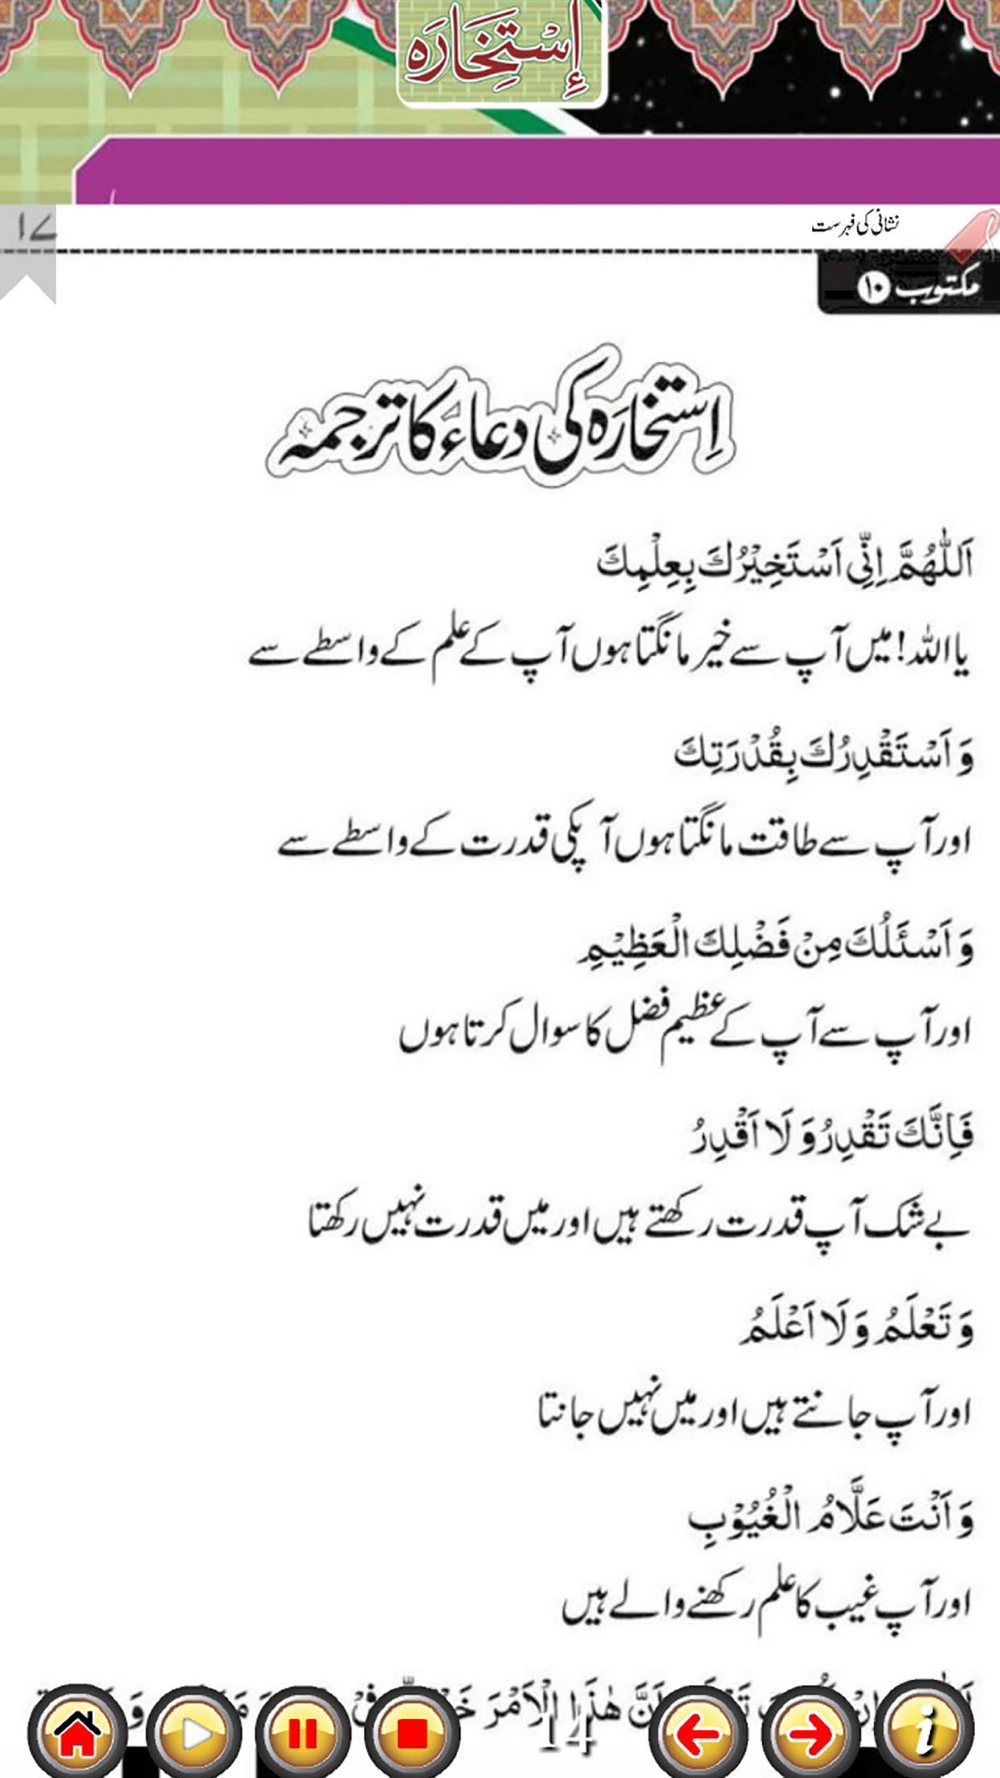 إِسْتِخَارَه
١٧
نشانی کی فہرست
مکتوب ١٠
اِستخارَہ کی دعاء کا ترجمہ
اَللّٰهُمَّ اِنِّی اَسْتَخِیْرُكَ بِعِلْمِكَ
یااللہ! میں آپ سے خیر مانگتا ہوں آپ کے علم کے واسطے سے
وَ اَسْتَقْدِرُكَ بِقُدْرَتِكَ
اور آپ سے طاقت مانگتا ہوں آپکی قدرت کے واسطے سے
وَ اَسْئَلُكَ مِنْ فَضْلِكَ الْعَظِیْمِ
اور آپ سے آپ کے عظیم فضل کا سوال کرتا ہوں
فَاِنَّكَ تَقْدِرُ وَ لَا اَقْدِرُ
بے شک آپ قدرت رکھتے ہیں اور میں قدرت نہیں رکھتا
وَ تَعْلَمُ وَ لَا اَعْلَمُ
اور آپ جانتے ہیں اور میں نہیں جانتا
وَ اَنْتَ عَلَّامُ الْغُیُوْبِ
اور آپ غیب کا علم رکھنے والے ہیں
هٰذَا الْاَمْرَ
14